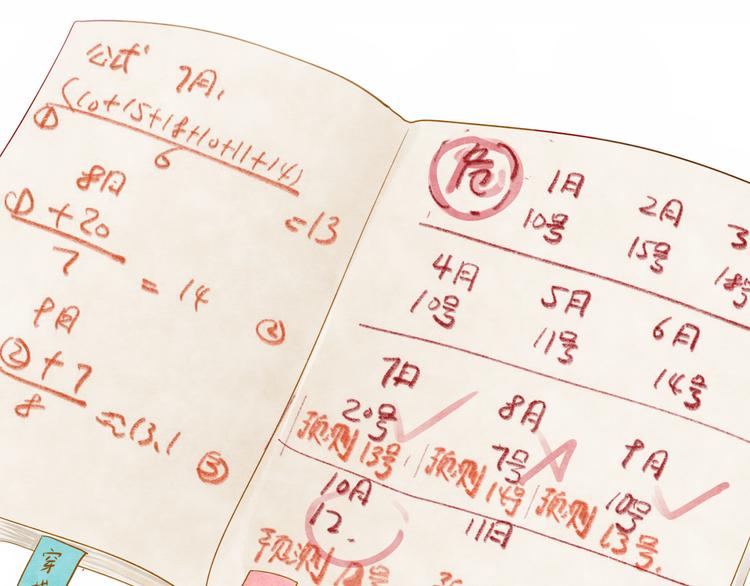 公式 7月,
① (10+15+18+10+11+14)
6
=13
8月
① + 20
7
= 14 ②
9月
② + 7
8
≈13.1 ③
穿
危 1月 2月 3
10号 15号 18号
4月 5月 6月
10号 11号 14号
7月 8月 9月
20号 7号 10号
预测13号. 预测14号 预测13号.
10月 11月
12.
预测